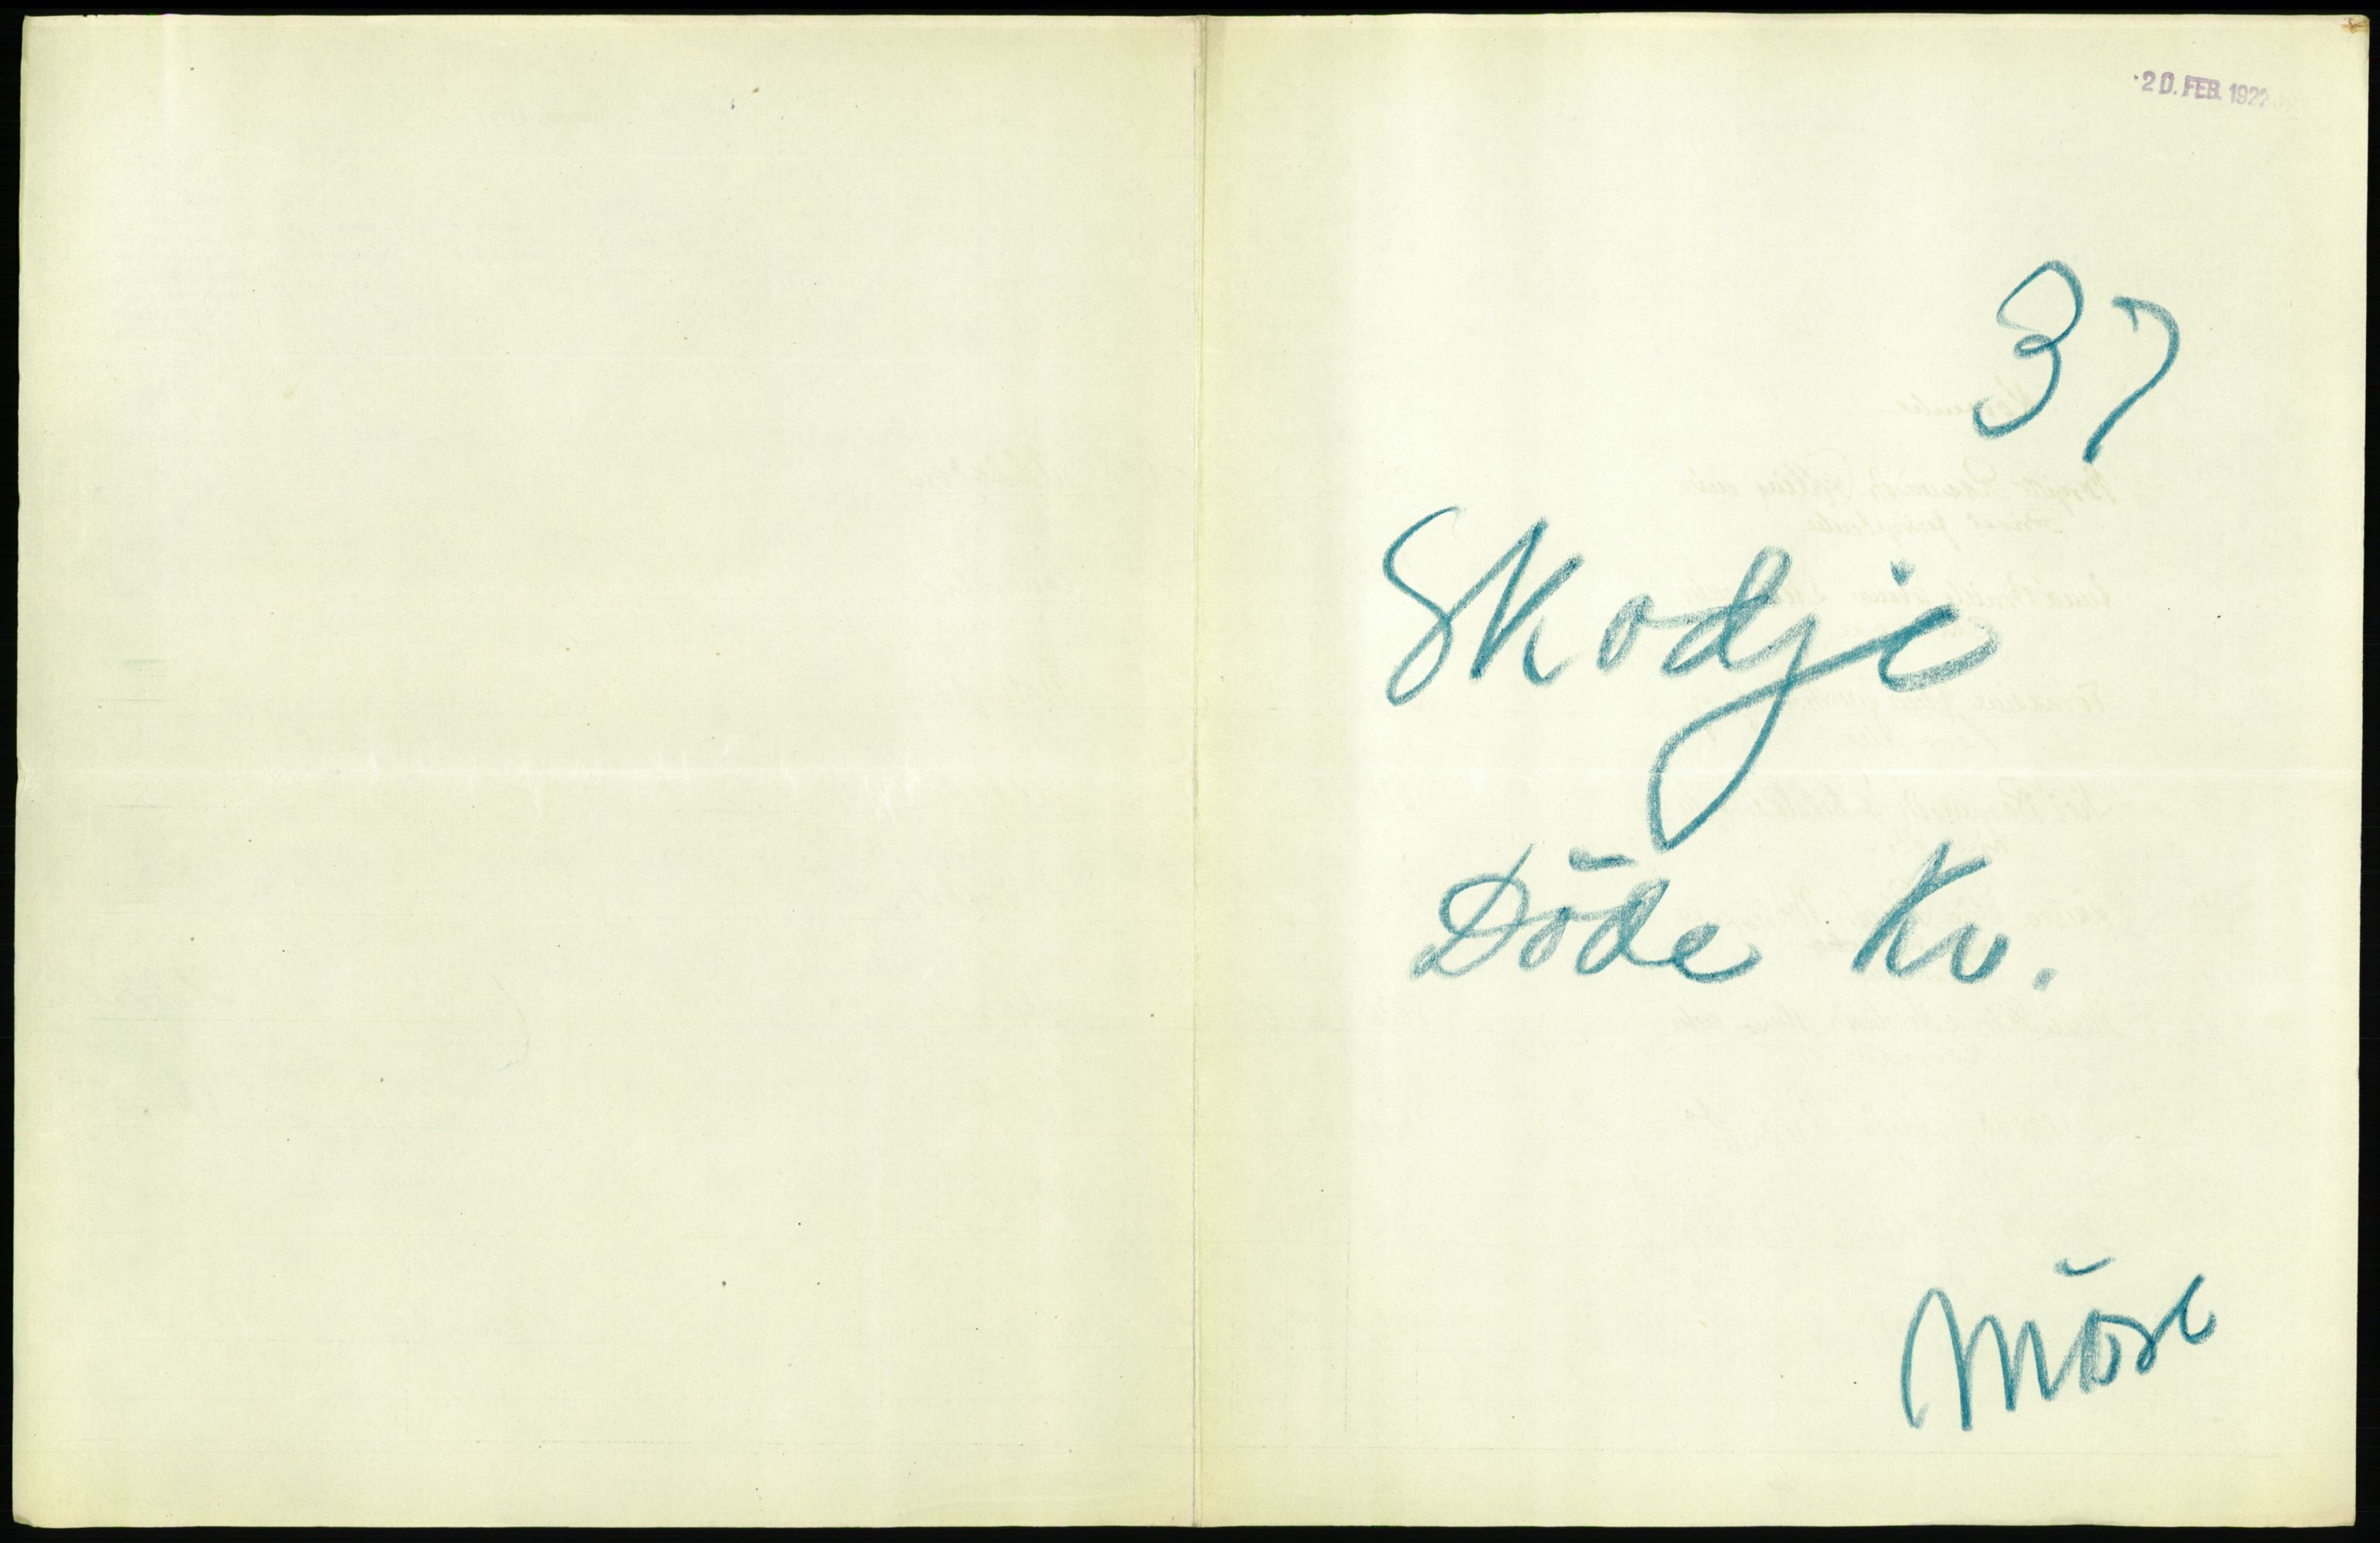 20. FEB. 1922
37
Skodje
Döde Kv.
Möre